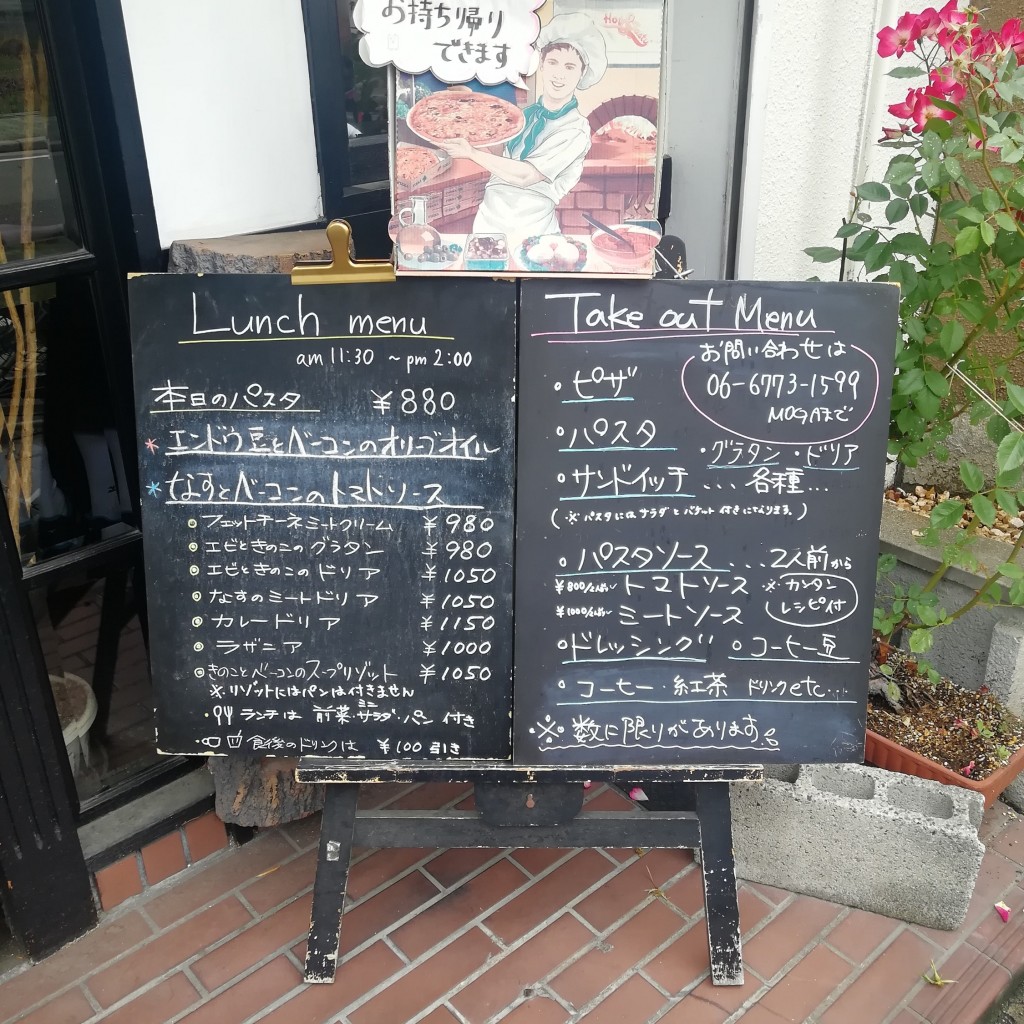 お持ち帰り
できます
Lunch menu
am 11:30 ~ pm 2:00
本日のパスタ ¥880
* エンドウ豆とベーコンのオリーブオイル
* なすとベーコンのトマトソース
フェットチーネミートクリーム ¥980
エビときのこのグラタン ¥980
エビときのこのドリア ¥1050
なすのミートドリア ¥1050
カレードリア ¥1150
ラザニア ¥1000
きのことベーコンのスープリゾット ¥1050
※リゾットにはパンは付きません
・ランチは 前菜・ミニサラダ・パン 付き
・食後のドリンクは ¥100 引き
Take out Menu
お問い合わせは
06-6773-1599
MOGAまで
・ピザ
・パスタ ・グラタン・ドリア
・サンドイッチ ... 各種...
(※パスタにはサラダとバケット付きになります。)
・パスタソース ...2人前から
¥800/2人前~ トマトソース
¥1000/2人前~ ミートソース
※カンタン
レシピ付
・ドレッシング ・コーヒー豆
・コーヒー・紅茶 ドリンクetc...
・※数に限りがあります。